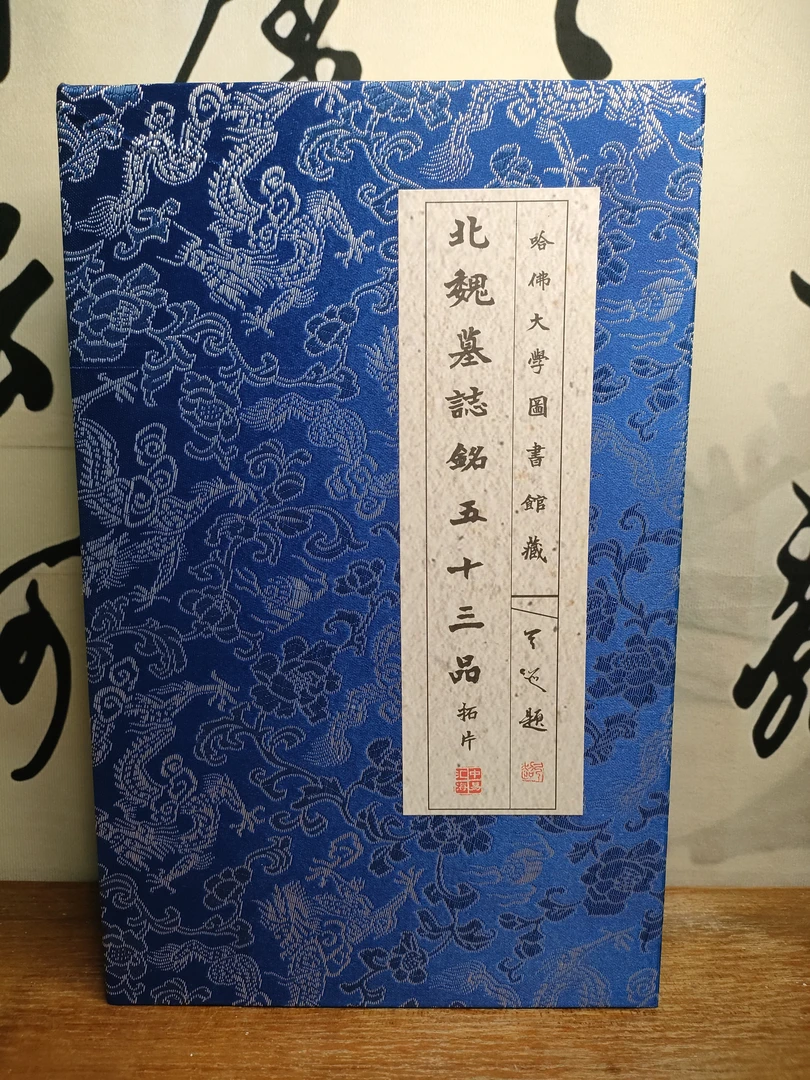 哈佛大學圖書館藏
題
北魏墓誌銘五十三品
拓片